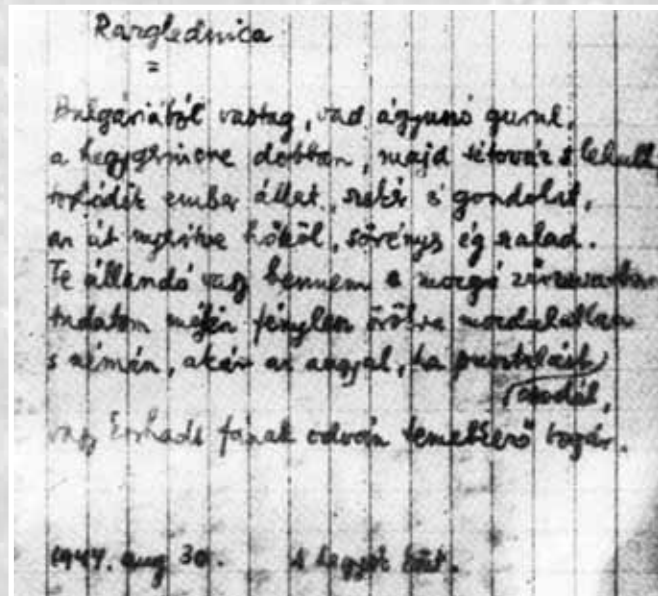 Razglednica
=
Bulgáriából vastag, vad ágyuszó gurul,
a hegygerincre dobban, majd tétováz s lehull,
torlódik ember, állat, szekér és gondolat,
az út nyerítve hőköl, sörényes ég szalad.
Te állandó vagy bennem e mozgó zürzavarban
tudatom mélyén fénylesz örökre mozdulatlan
s némán, akár az angyal, ha pusztulást
csodál,
vagy korhadt fának odván temetkező bogár.
1944. aug 30. A hegyek közt.